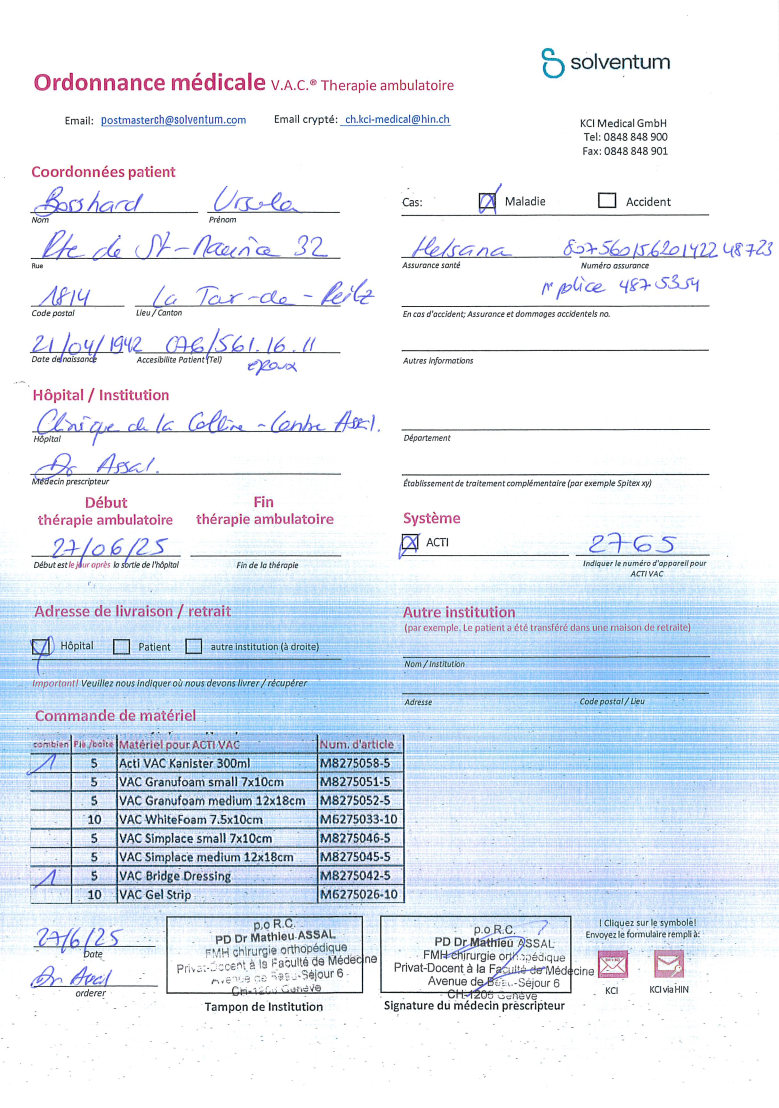 solventum
Ordonnance médicale V.A.C.® Therapie ambulatoire
Email: postmasterch@solventum.com Email crypté: ch.kci-medical@hin.ch
KCI Medical GmbH
Tel: 0848 848 900
Fax: 0848 848 901
Coordonnées patient
Bosshard Ursula
Nom Prénom
Cas: Maladie Accident
Rte de St-Maurice 32
Rue
Helsana 80756015620142248723
Assurance santé Numéro assurance
n° police 4875354
1814 La Tour-de-Peilz
Code postal Lieu / Canton
En cas d'accident; Assurance et dommages accidentels no.
21/04/1942 076/561.16.11
Date de naissance Accesibilite Patient (Tel)
époux
Autres informations
Hôpital / Institution
Clinique de la Colline - Centre Assal.
Hôpital
Département
Dr Assal.
Médecin prescripteur
Établissement de traitement complémentaire (par exemple Spitex xy)
Début Fin
thérapie ambulatoire thérapie ambulatoire
Système
27/06/25
ACTI 2765
Début est le jour après la sortie de l'hôpital Fin de la thérapie
Indiquer le numéro d'appareil pour
ACTI VAC
Adresse de livraison / retrait
Autre institution
(par exemple. Le patient a été transféré dans une maison de retraite)
Hôpital Patient autre institution (à droite)
Nom / Institution
Important! Veuillez nous indiquer où nous devons livrer / récupérer
Adresse Code postal / Lieu
Commande de matériel
combien Pie./boite Matériel pour ACTI VAC Num. d'article
1 5 Acti VAC Kanister 300ml M8275058-5
5 VAC Granufoam small 7x10cm M8275051-5
5 VAC Granufoam medium 12x18cm M8275052-5
10 VAC WhiteFoam 7.5x10cm M6275033-10
5 VAC Simplace small 7x10cm M8275046-5
5 VAC Simplace medium 12x18cm M8275045-5
1 5 VAC Bridge Dressing M8275042-5
10 VAC Gel Strip M6275026-10
27/6/25
Date
Dr Assal
orderer
p.o R.C.
PD Dr Mathieu ASSAL
FMH chirurgie orthopédique
Privat-Docent à la Faculté de Médecine
Avenue de Beau-Séjour 6
CH-1206 Genève
Tampon de Institution
p.o R.C.
PD Dr Mathieu ASSAL
FMH chirurgie orthopédique
Privat-Docent à la Faculté de Médecine
Avenue de Beau-Séjour 6
CH-1206 Genève
Signature du médecin prescripteur
! Cliquez sur le symbole!
Envoyez le formulaire rempli à:
KCI KCI via HIN